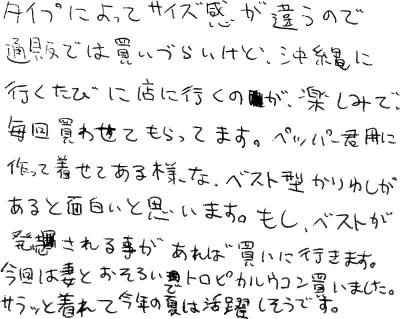 タイプによってサイズ感が違うので
通販では買いづらいけど、沖縄に
行くたびに店に行くのが、楽しみで、
毎回買わせてもらってます。ペッパー君用に
作って着せてある様な、ベスト型かりゆしが
あると面白いと思います。もし、ベストが
発想される事があれば買いに行きます。
今回は妻とおそろいでトロピカルウコン買いました。
サラッと着れて今年の夏は活躍しそうです。